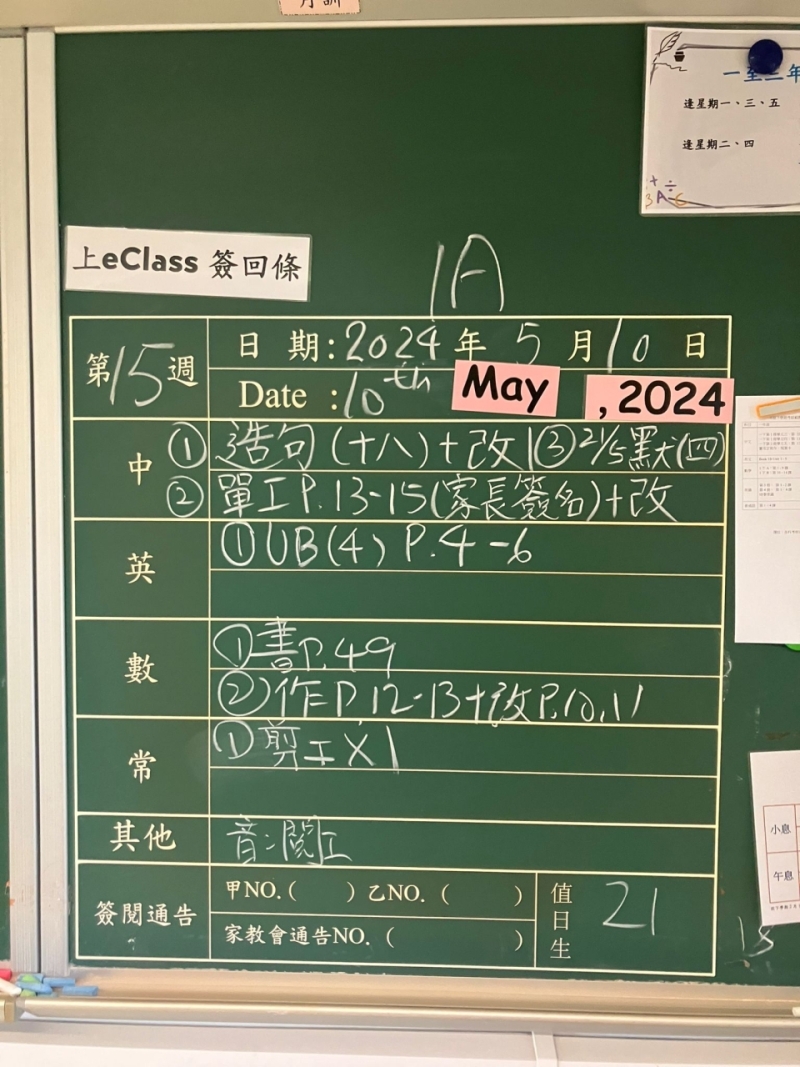 月訓
一至三年
逢星期一、三、五
逢星期二、四
上eClass 簽回條
1A
第15週
日 期:2024年5月10日
Date :10th May , 2024
中
①造句(十八)+改 ③21/5默(四)
②單工P.13-15(家長簽名)+改
英
①UB(4) P.4-6
數
①書P.49
②作P.12-13+改P.10,11
常
①剪工X1
其他
音:閱工
簽閱通告
甲NO.( ) 乙NO.( )
家教會通告NO.( )
值日生
21
小息
午息